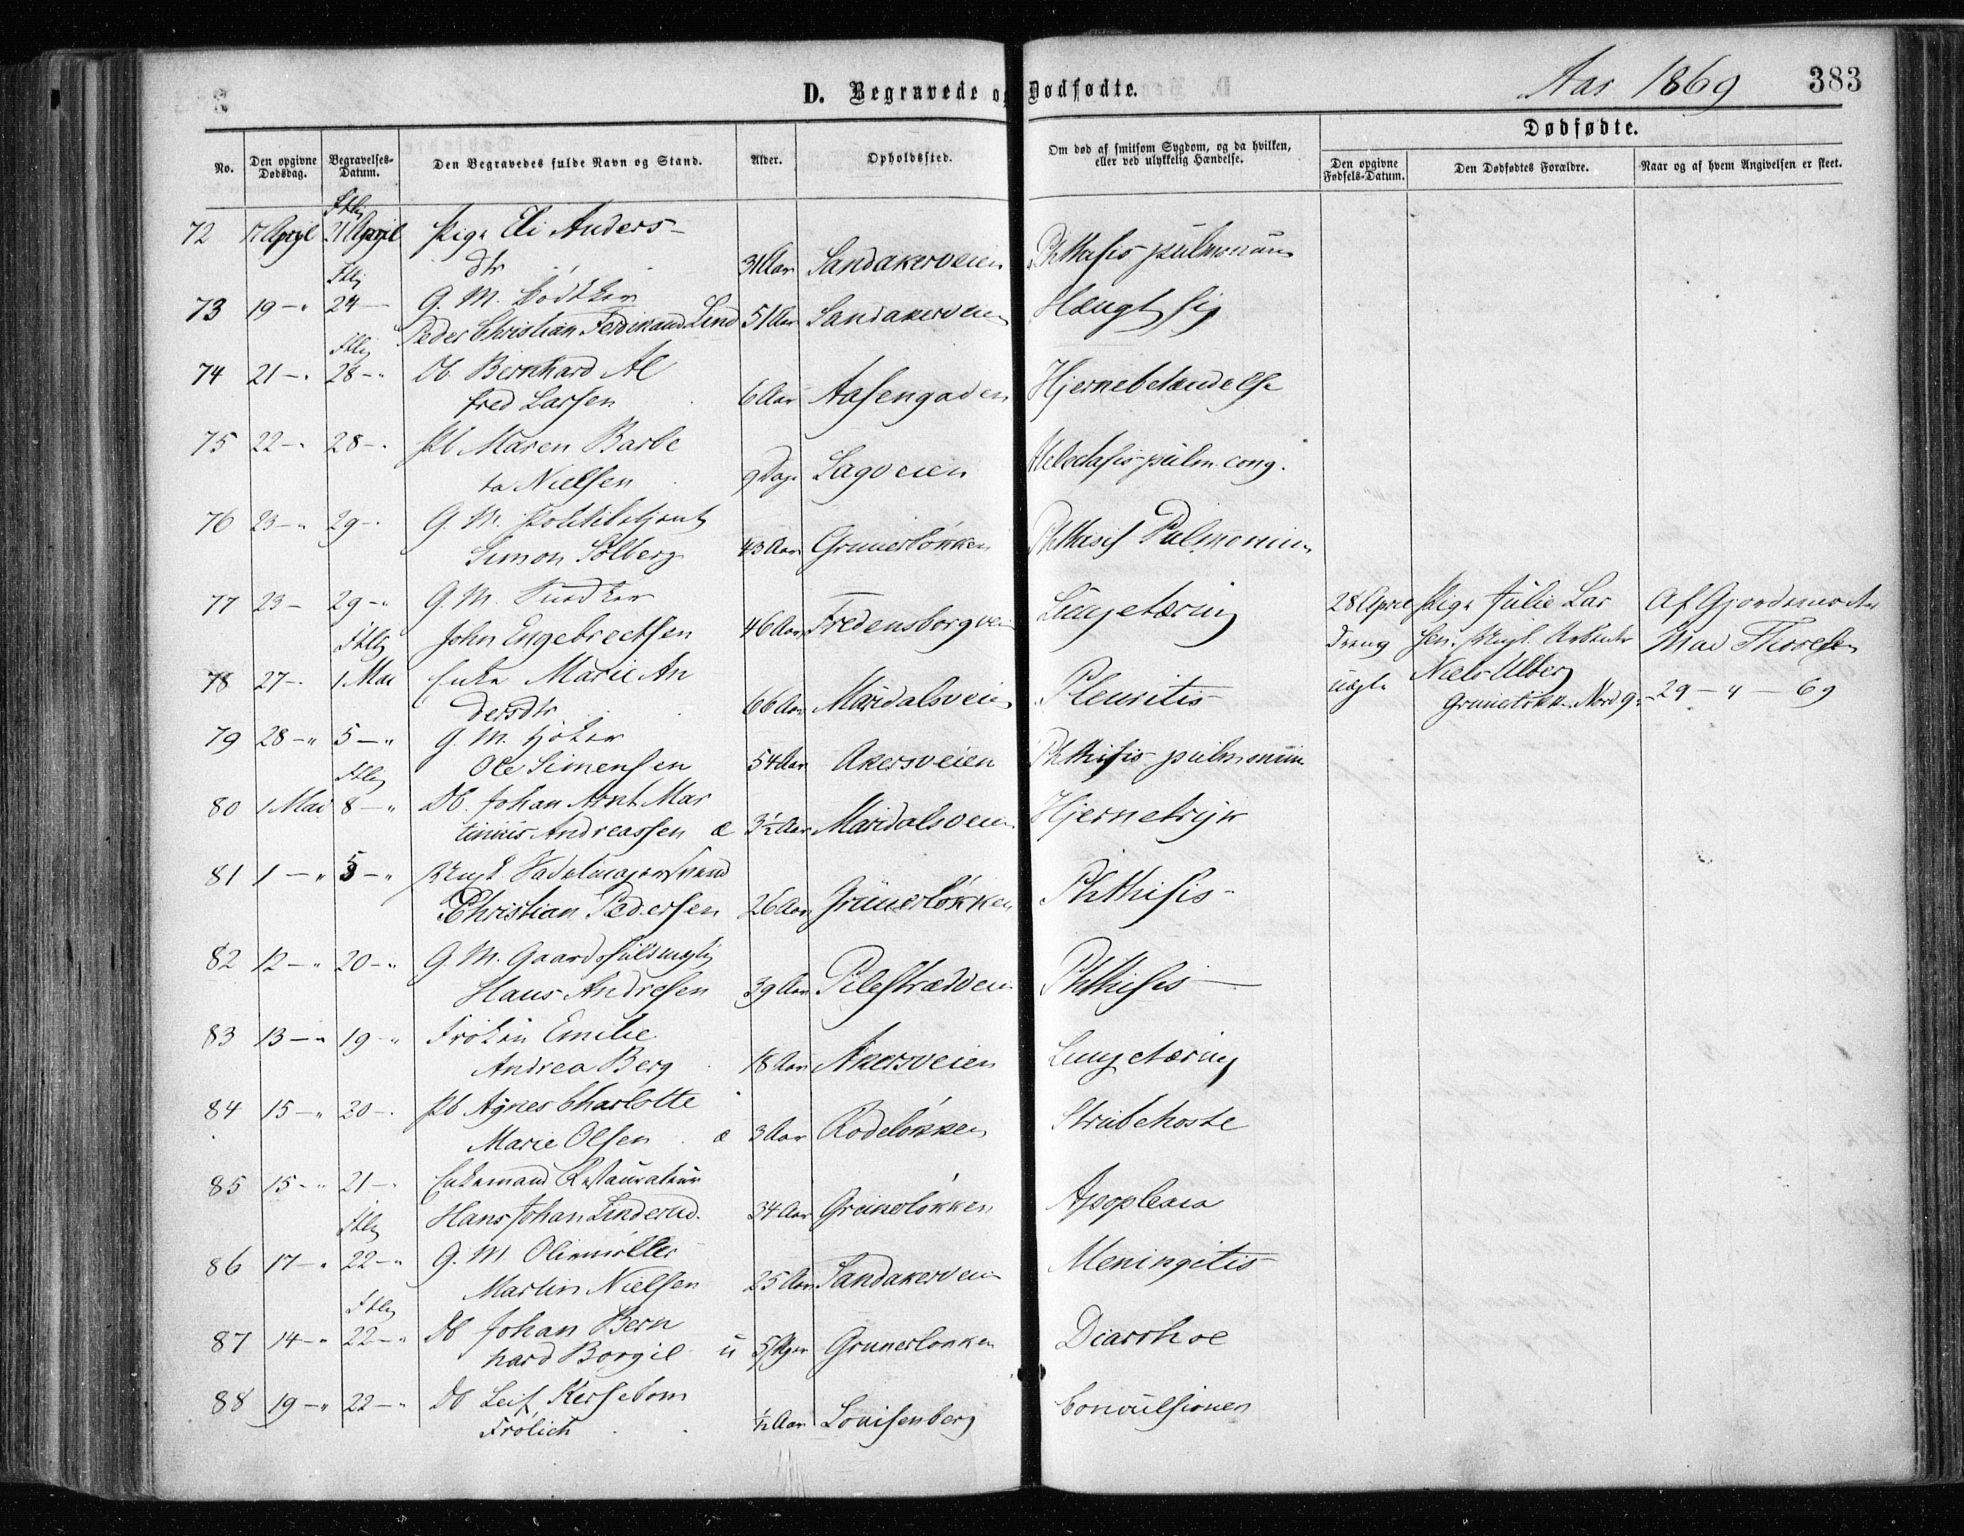 D. Begravede og Dødfødte.
Aar 1869
383
Dødfødte.
No.
Den opgivne Dødsdag.
Begravelses-Datum.
Den Begravedes fulde Navn og Stand.
Alder.
Opholdssted.
Om død af smitsom Sygdom, og da hvilken, eller ved ulykkelig Hændelse.
Den opgivne Fødsels-Datum.
Den Dødfødtes Forældre.
Naar og af hvem Angivelsen er skeet.
72 17 April 21 April Pige Eli Anders-
dtr 31 Aar Sandakerveien Phthisis pulmonum
73 19 - " 24 - G. M. Bødker
Peder Christian Ferdinand Lind 51 Aar Sandakerveien Hængt sig
74 21 - " 28 - " Db. Bernhard Al
fred Larsen 6 Aar Aasengaden Hjernebetændelse
75 22 - " 28 - Pb Maren Barbe
ta Nielsen 9 Dage Sagveien pulm. cong.
76 23 - " 29 - G. M. Politibetjent
Simon Solberg 43 Aar Grünerløkken Phthisis Pulmonum
77 23 - 29 - " G. M. Snedker
John Engebrectsen 46 Aar Fredensborgvei Lungetæring
28 April Pige Julie Lar Af Gjordemoder
Dreng sen, Ungk. Arbeider Mad Thoresen
uægte Niels Ulberg
Grünerløkk. Nordg. 29 - 4 - 69
78 27 - 1 Mai Enke Marie An
dersdtr 66 Aar Maridalsveien Pleuritis
79 28 - " 5 - " G. M. Høker
Ole Simensen 54 Aar Akersveien Phthisis pulmonum
80 1 Mai 8 - " Db. Johan Arnt Mar
tinius Andreassen æ 3½ Aar Maridalsveien Hjernetryk
81 1 - " 5 - " Ungk Sadelmagersvend
Christian Pedersen 26 Aar Grünerløkken Phthisis -
82 12 - " 20 - " G. M. Gaardsfuldmægtig
Hans Andresen 39 Aar Pilestrædveien Phthisis -
83 13 - " 19 - " Frøken Emilie
Andrea Berg 18 Aar Akersveien Lungetæring
84 15 - " 20 - Pb Agnes Charlotte
Marie Olsen æ 3 Aar Rodeløkken Strubehoste
85 15 - " 21 - Enkemand Restauratør
Hans Johan Linderud. 34 Aar Grünerløkken Apoplexia
86 17 - " 22 - " G. M Oliemøller
Martin Nielsen 25 Aar Sandakerveien Meningitis
87 14 - " 22 - " Db Johan Bern
hard Borgil u 5 Uger Grunerløkken Diarrhoe
88 19 - " 22 - " Db Leif Kersebom
Frølich ½ Aar Louisenberg Convulsioner